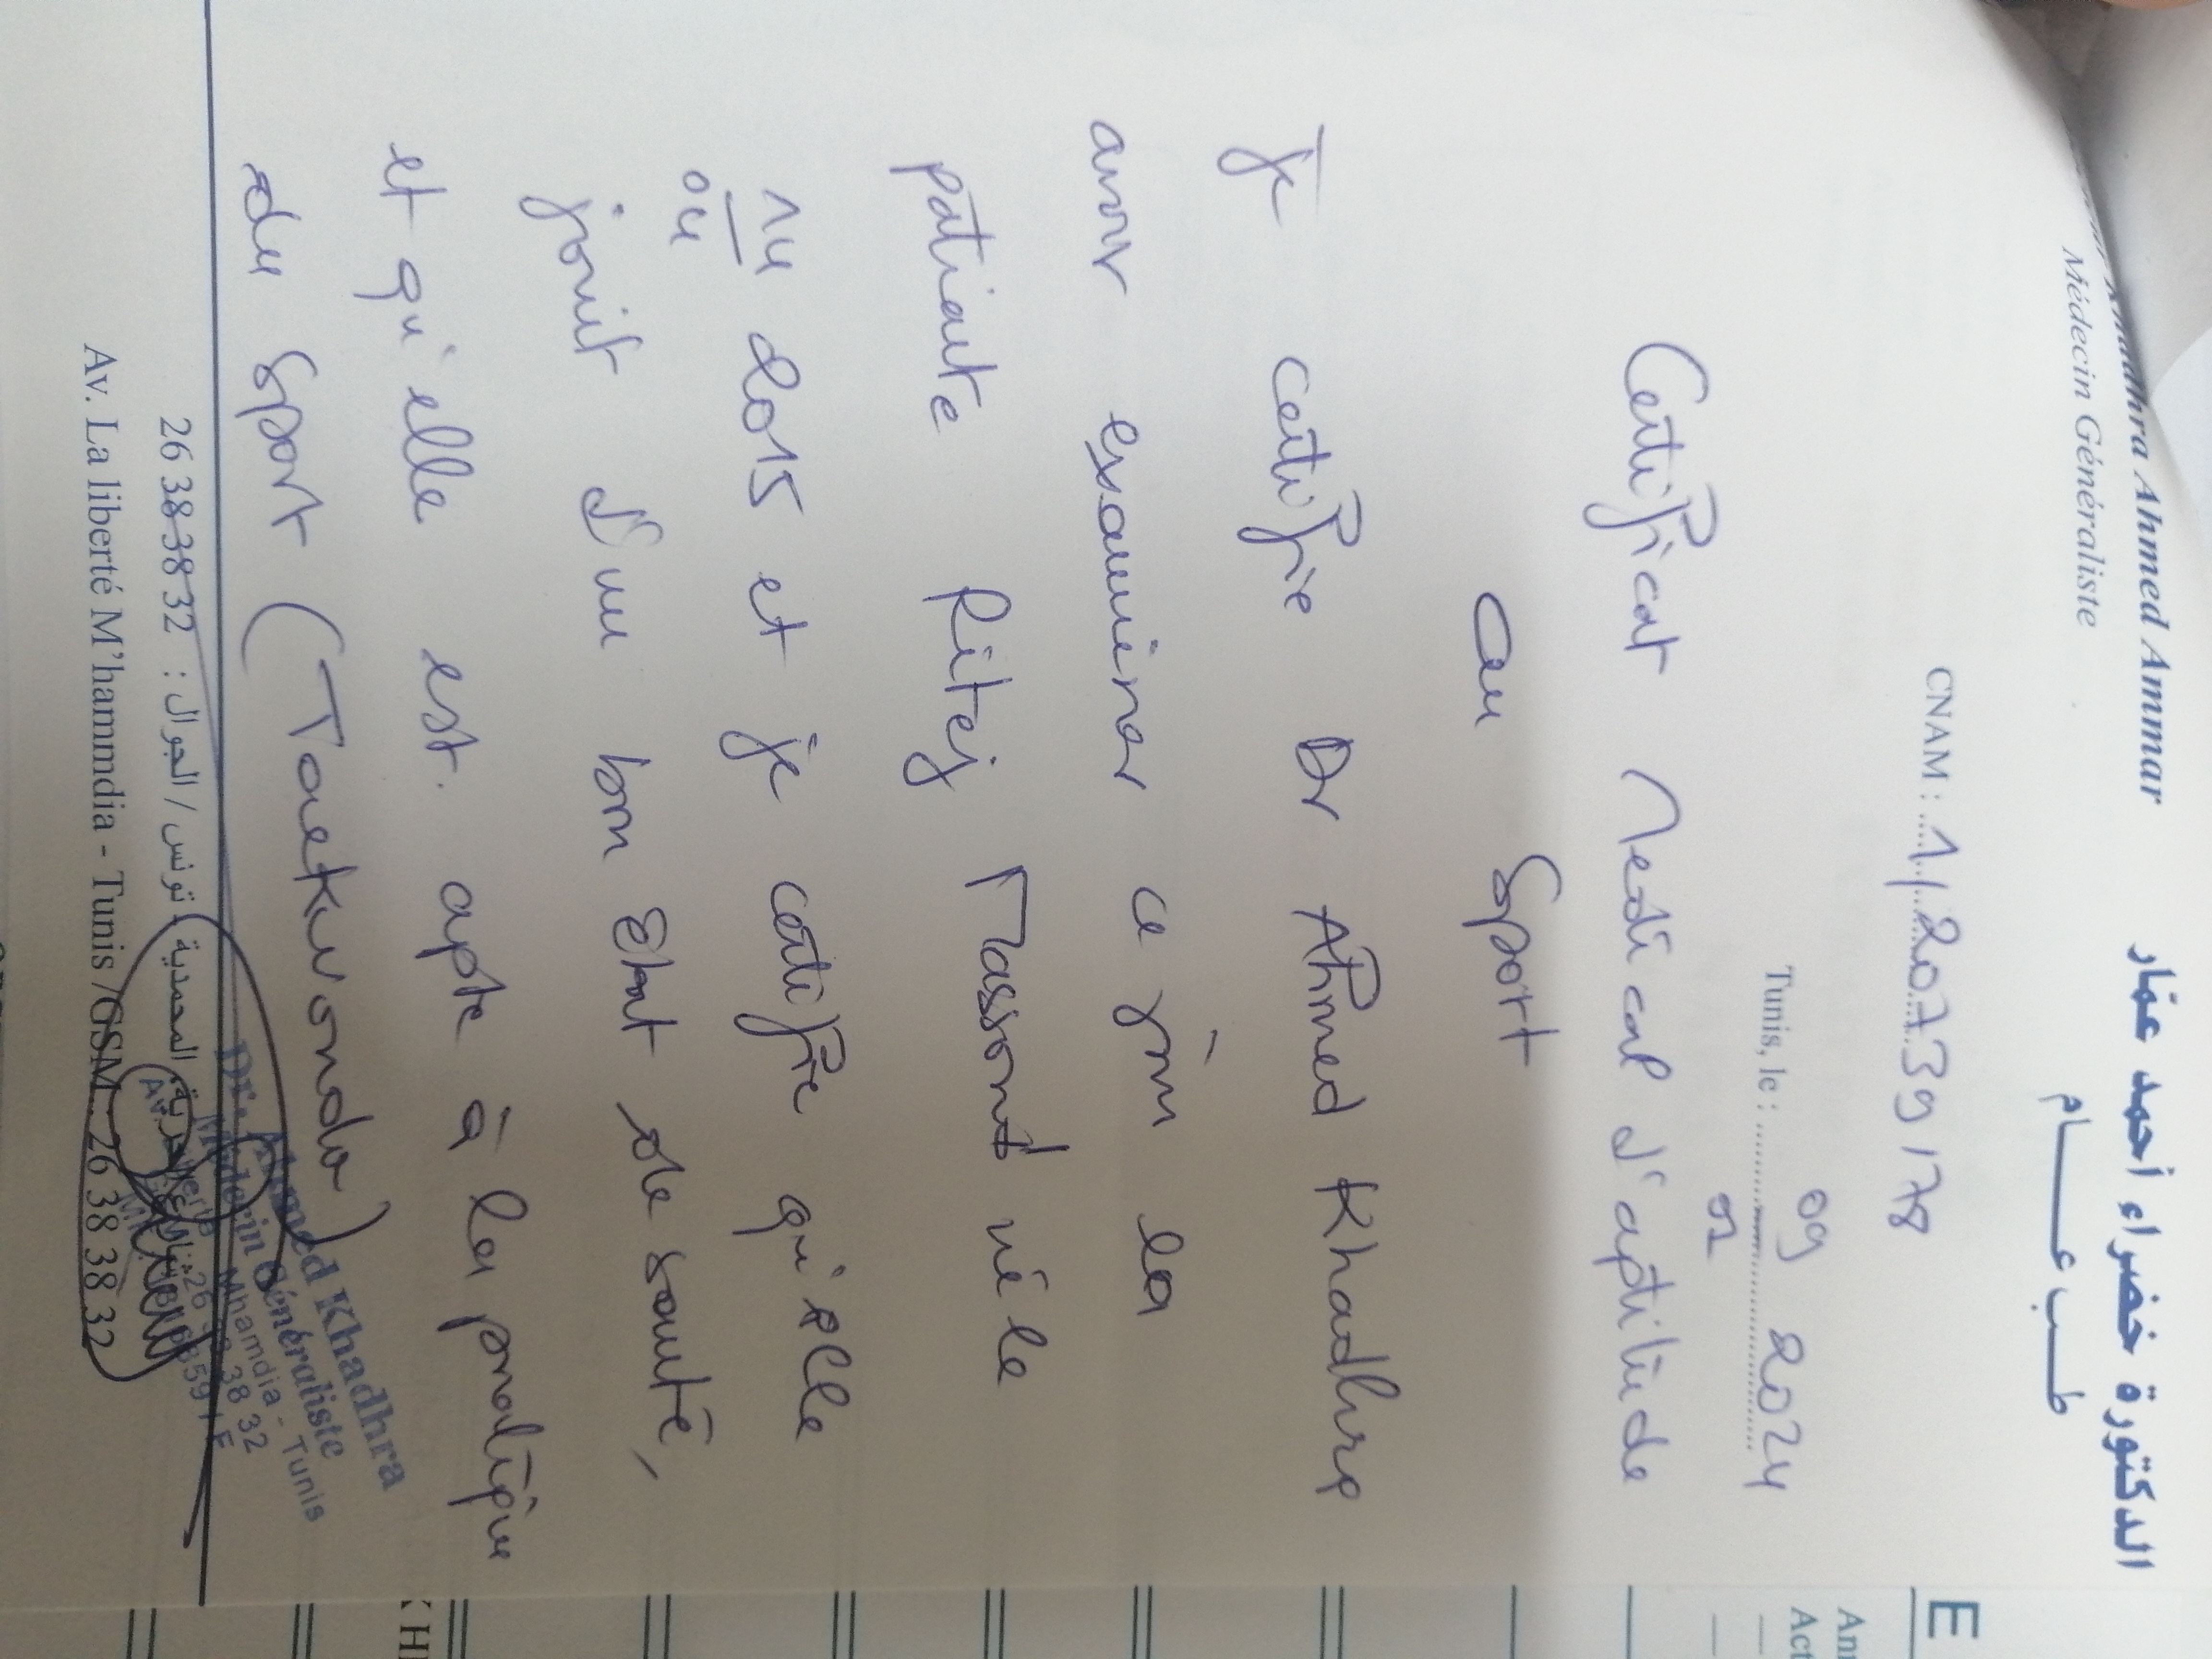 Khadhra Ahmed Ammar
Médecin Généraliste
الدكتورة خضراء أحمد عمّار
طب عــــام
CNAM : 1/207.39/78
Tunis, le : 09 02 2024
Certificat Medical d'aptitude
au Sport
Je certifie Dr Ahmed Khadhra
avoir examiner ce jour la
patiente Ritej née le
14 04 2015 et je certifie qu'elle
jouit d'un bon état de santé,
et qu'elle est apte à la pratique
du Sport (Taekwondo)
Dr. Ahmed Khadhra
Médecin Généraliste
Mhamdia - Tunis
38 32
المحمدية تونس / الجوال : 26 38 38 32
Av. La liberté M'hammdia - Tunis / GSM : 26 38 38 32
E